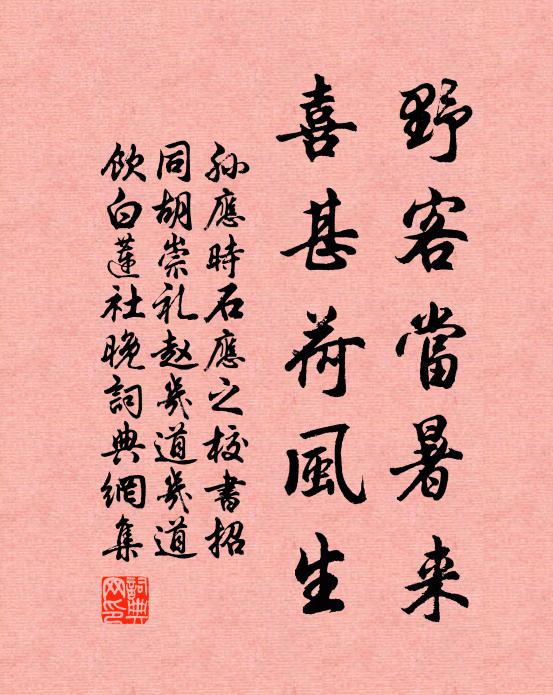 野客當暑来
喜甚荷風生
孙應時石應之校書招
同胡崇礼赵㡬道㡬道
飲白蓮社晚詞典網集
詞典網印